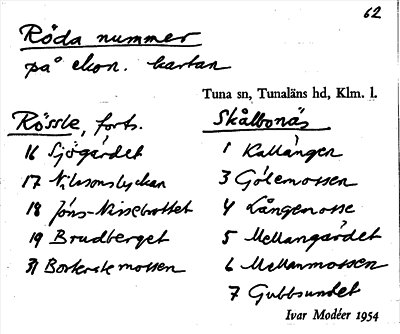 62
Röda nummer
på ekon. kartan
Tuna sn, Tunaläns hd, Klm. l.
Rössle, forts.
16 Sjögärdet
17 Nilssonslyckan
18 Jöns-Nissebrottet
19 Brudberget
31 Borterstemossen
Skålbonäs
1 Kallängen
3 Gölemossen
4 Långemosse
5 Mellangärdet
6 Mellanmossen
7 Gubbsundet
Ivar Modéer 1954